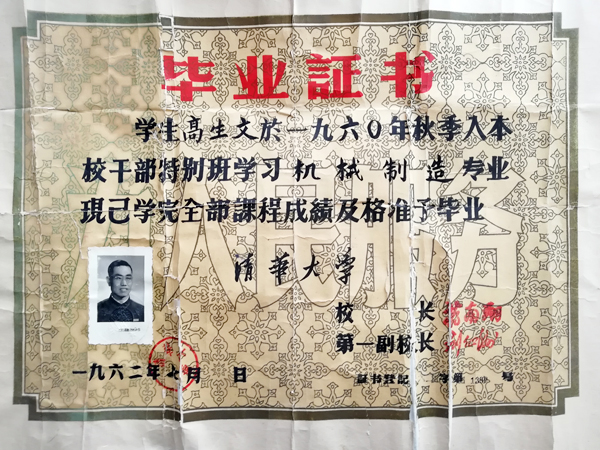 毕业証书
学生高生文於一九六〇年秋季入本
校干部特别班学习机械制造专业
現已学完全部課程成績及格准予毕业
为人民服务
清華大学
校 长 蒋南翔
第一副校长
一九六二年七月 日
証书登記 字第 138 号